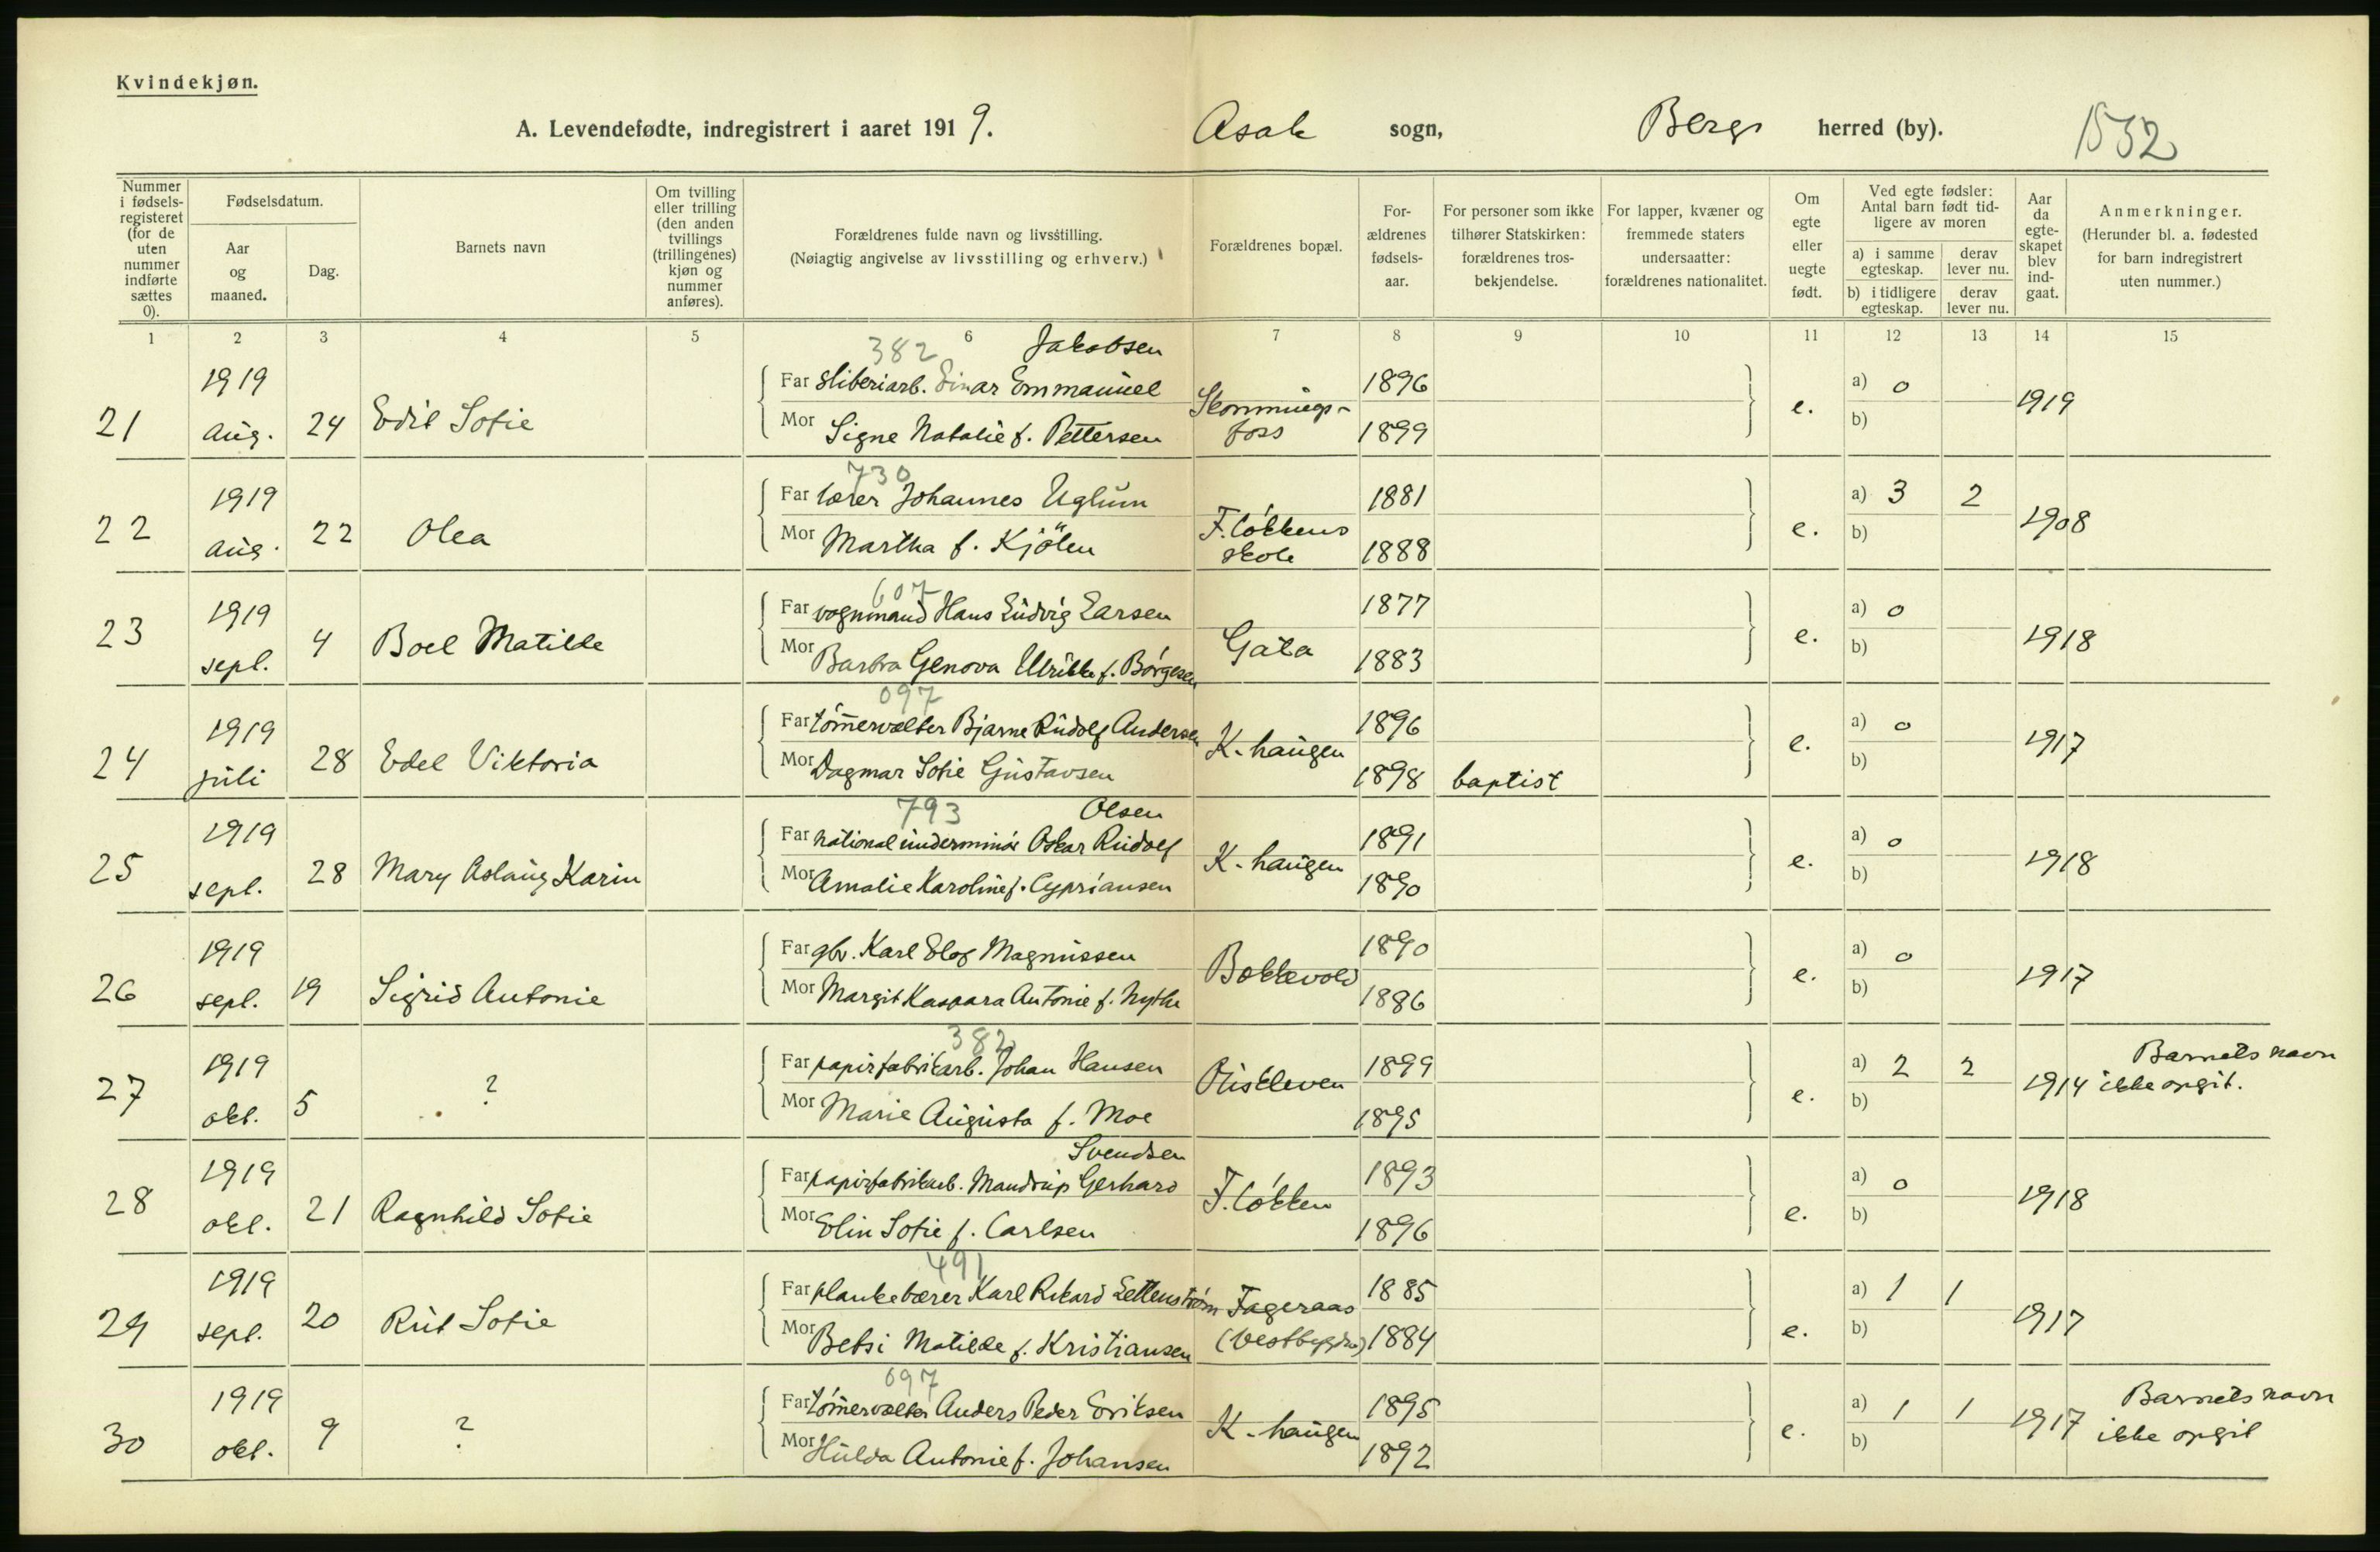 Kvindekjøn.
A. Levendefødte, indregistrert i aaret 1919. Asak sogn, Berg herred (by). 1532
Nummer i fødselsregisteret (for de uten nummer indførte sættes 0).
Fødselsdatum.
Aar og maaned.
Dag.
Barnets navn
Om tvilling eller trilling (den anden tvillings (trillingenes) kjøn og nummer anføres).
Forældrenes fulde navn og livsstilling.
(Nøiagtig angivelse av livsstilling og erhverv.)
Forældrenes bopæl.
Forældrenes fødselsaar.
For personer som ikke tilhører Statskirken: forældrenes trosbekjendelse.
For lapper, kvæner og fremmede staters undersaatter: forældrenes nationalitet.
Om egte eller uegte født.
Ved egte fødsler: Antal barn født tidligere av moren
a) i samme egteskap.
derav lever nu.
b) i tidligere egteskap.
derav lever nu.
Aar da egteskapet blev indgaat.
Anmerkninger.
(Herunder bl. a. fødested for barn indregistrert uten nummer.)
1 2 3 4 5 6 7 8 9 10 11 12 13 14 15
382 Jakobsen
21 1919 aug. 24 Edit Sofie
Far sliberiarb. Einar Emmanuel 1896
Mor Signe Natalie f. Pettersen 1899
Skonningsfoss e. a) 0 b) 1919
730
22 1919 aug. 22 Olea
Far lærer Johannes Uglum 1881
Mor Martha f. Kjölen 1888
F. løkkens skole e. a) 3 2 b) 1908
607
23 1919 sept. 4 Boel Matilde
Far vognmand Hans Ludvig Larsen 1877
Mor Barbra Genova Ulrikke f. Børgesen 1883
Gata e. a) 0 b) 1918
697
24 1919 juli 28 Edel Viktoria
Far tømmervelter Bjarne Rudolf Andersen 1896
Mor Dagmar Sofie Gustavsen 1898 baptist
K-haugen e. a) 0 b) 1917
793 Olsen
25 1919 sept. 28 Mary Aslaug Karin
Far national underminör Oskar Rudolf 1891
Mor Amalie Karoline f. Cypriansen 1890
K-haugen e. a) 0 b) 1918
26 1919 sept. 19 Sigrid Antonie
Far gbr. Karl Elof Magnussen 1890
Mor Margit Kaspara Antonie f. Nythe 1886
Bakkevold e. a) 0 b) 1917
382
27 1919 okt. 5 ?
Far papirfabrikarb. Johan Hansen 1899
Mor Marie Augusta f. Moe 1895
Riskleven e. a) 2 2 b) 1914 Barnets navn ikke opgit.
Svendsen
28 1919 okt. 21 Ragnhild Sofie
Far papirfabrikarb. Mandrup Gerhard 1893
Mor Elin Sofie f. Carlsen 1896
F. løkken e. a) 0 b) 1918
491
29 1919 sept. 20 Rut Sofie
Far plankebærer Karl Rikard Lettenstrøm 1885
Mor Betsi Matilde f. Kristiansen 1884
Fageraas (Vestbygda) e. a) 1 1 b) 1917
697
30 1919 okt. 9 ?
Far tømmervelter Anders Peder Eriksen 1895
Mor Hulda Antonie f. Johansen 1892
K-haugen e. a) 1 1 b) 1917 Barnets navn ikke opgit